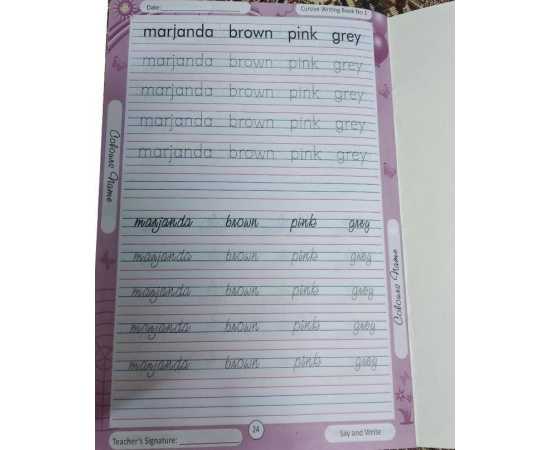 Date: Cursive Writing Book No 1
marjanda brown pink grey
marjanda brown pink grey
marjanda brown pink grey
marjanda brown pink grey
marjanda brown pink grey
Colours Name
marjanda brown pink grey
marjanda brown pink grey
marjanda brown pink grey
marjanda brown pink grey
marjanda brown pink grey
Colours Name
Teacher's Signature: 24 Say and Write